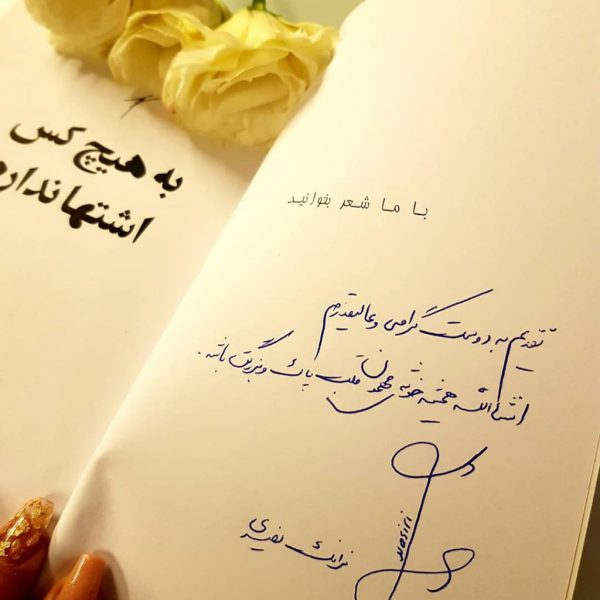 به هیچ کس
اشتها ندارم
با ما شعر بخوانید
تقدیم به دوست گرامی و عالیقدرم
انشاالله همیشه خوشی مهمون قلب پاک و بزرگت باشه.
nasiri
فرانک نصیری